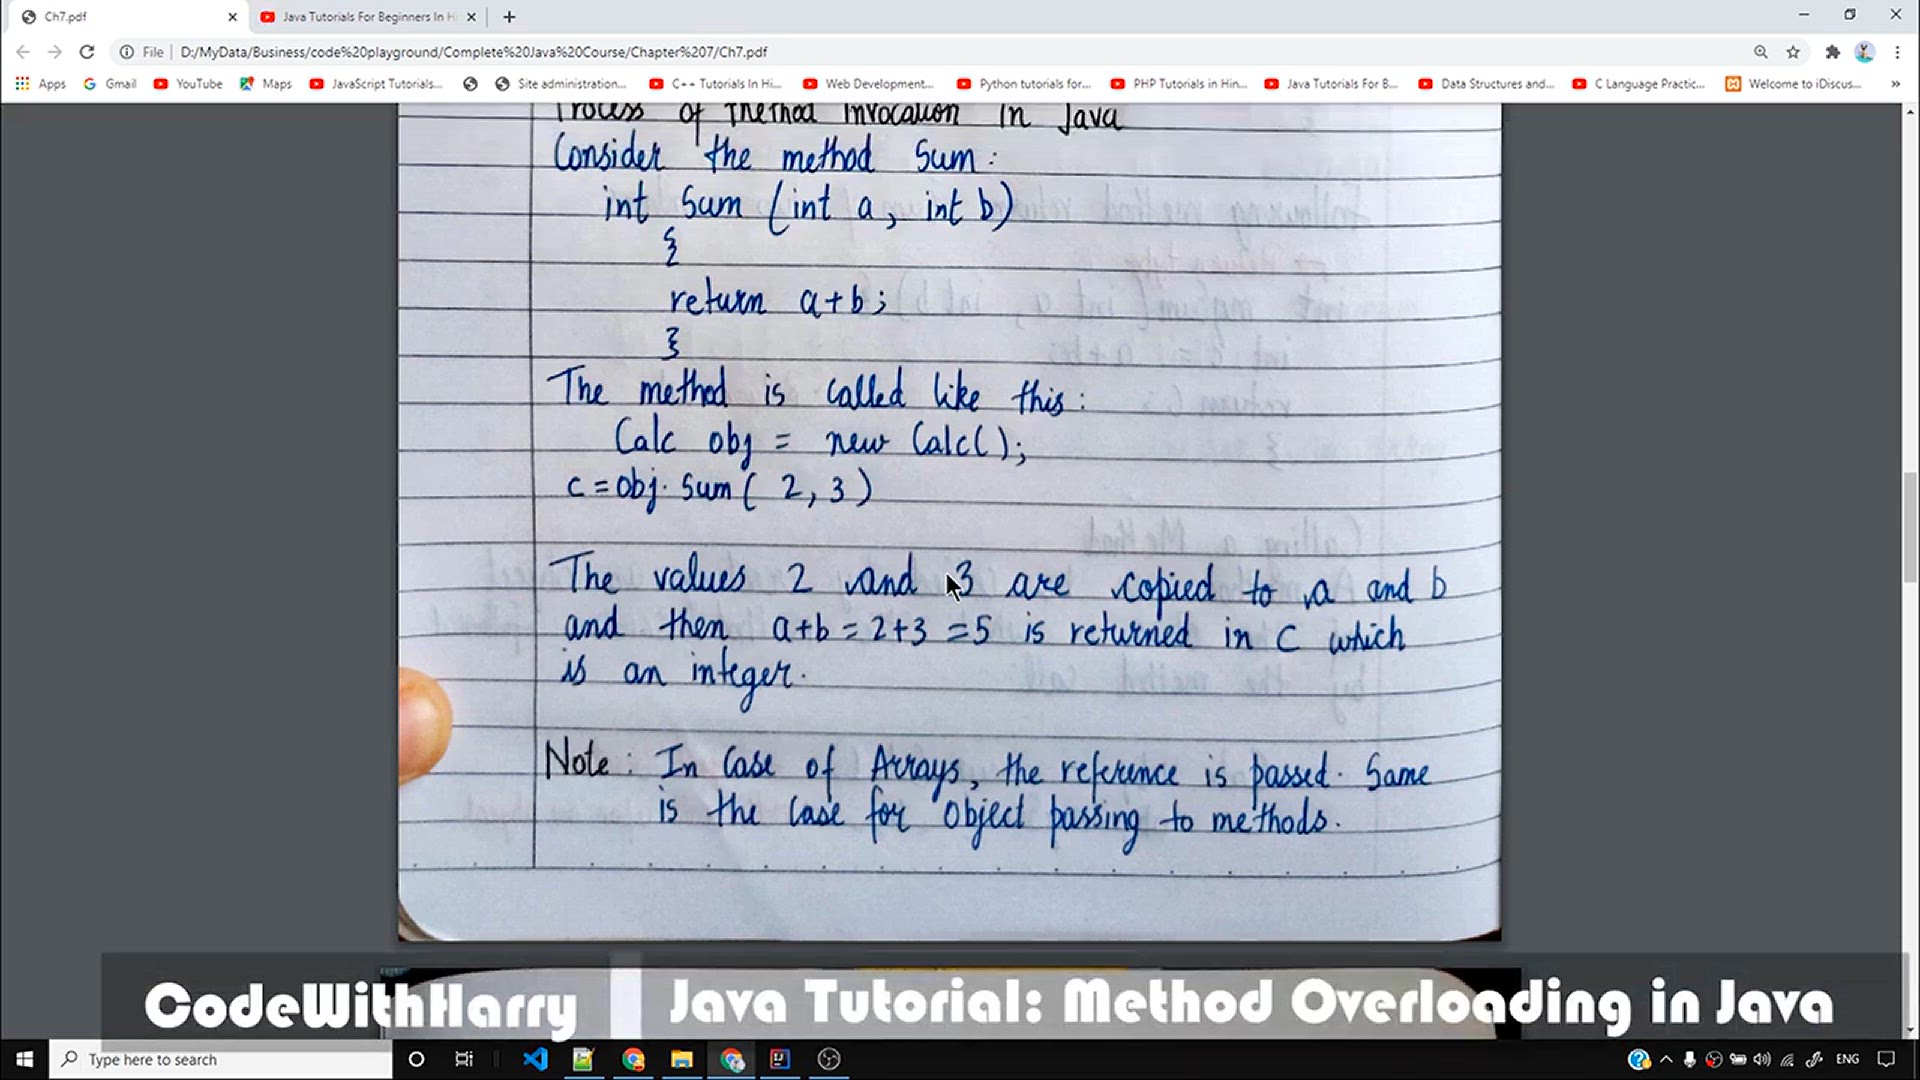 Ch7.pdf
Java Tutorials For Beginners In H
File D:/MyData/Business/code%20playground/Complete%20Java%20Course/Chapter%207/Ch7.pdf
Apps Gmail YouTube Maps JavaScript Tutorials... Site administration... C++ Tutorials In Hi... Web Development... Python tutorials for... PHP Tutorials in Hin... Java Tutorials For B... Data Structures and... C Language Practic... Welcome to iDiscus... »
Process of Method Invocation in Java
Consider the method Sum:
int Sum (int a, int b)
{
return a+b;
}
The method is called like this:
Calc obj = new Calc();
c = obj. Sum( 2, 3 )
The values 2 and 3 are copied to a and b
and then a+b = 2+3 = 5 is returned in C which
is an integer.
Note: In Case of Arrays, the reference is passed. Same
is the case for object passing to methods.
CodeWithHarry Java Tutorial: Method Overloading in Java
Type here to search
ENG